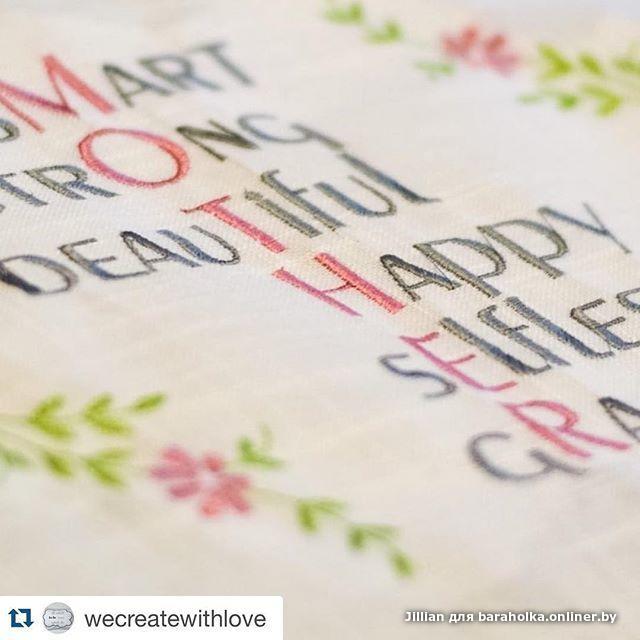 SMART
STRONG
BEAUTIfUL
HAPPY
SElflES
GRA
wecreatewithlove
Jillian для baraholka.onliner.by